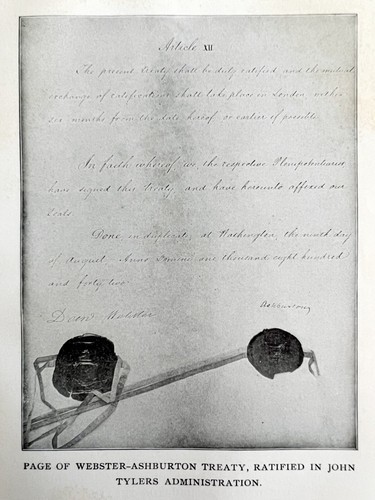 Article XII
The present treaty shall be duly ratified, and the mutual
exchange of ratifications shall take place in London, within
six months from the date hereof or earlier if possible.
In faith whereof we, the respective Plenipotentiaries
have signed this Treaty, and have hereunto affixed our
Seals.
Done, in duplicate, at Washington, the ninth day
of August, Anno Domini one thousand eight hundred
and forty two
Ashburton
Danl Webster
PAGE OF WEBSTER–ASHBURTON TREATY, RATIFIED IN JOHN
TYLERS ADMINISTRATION.